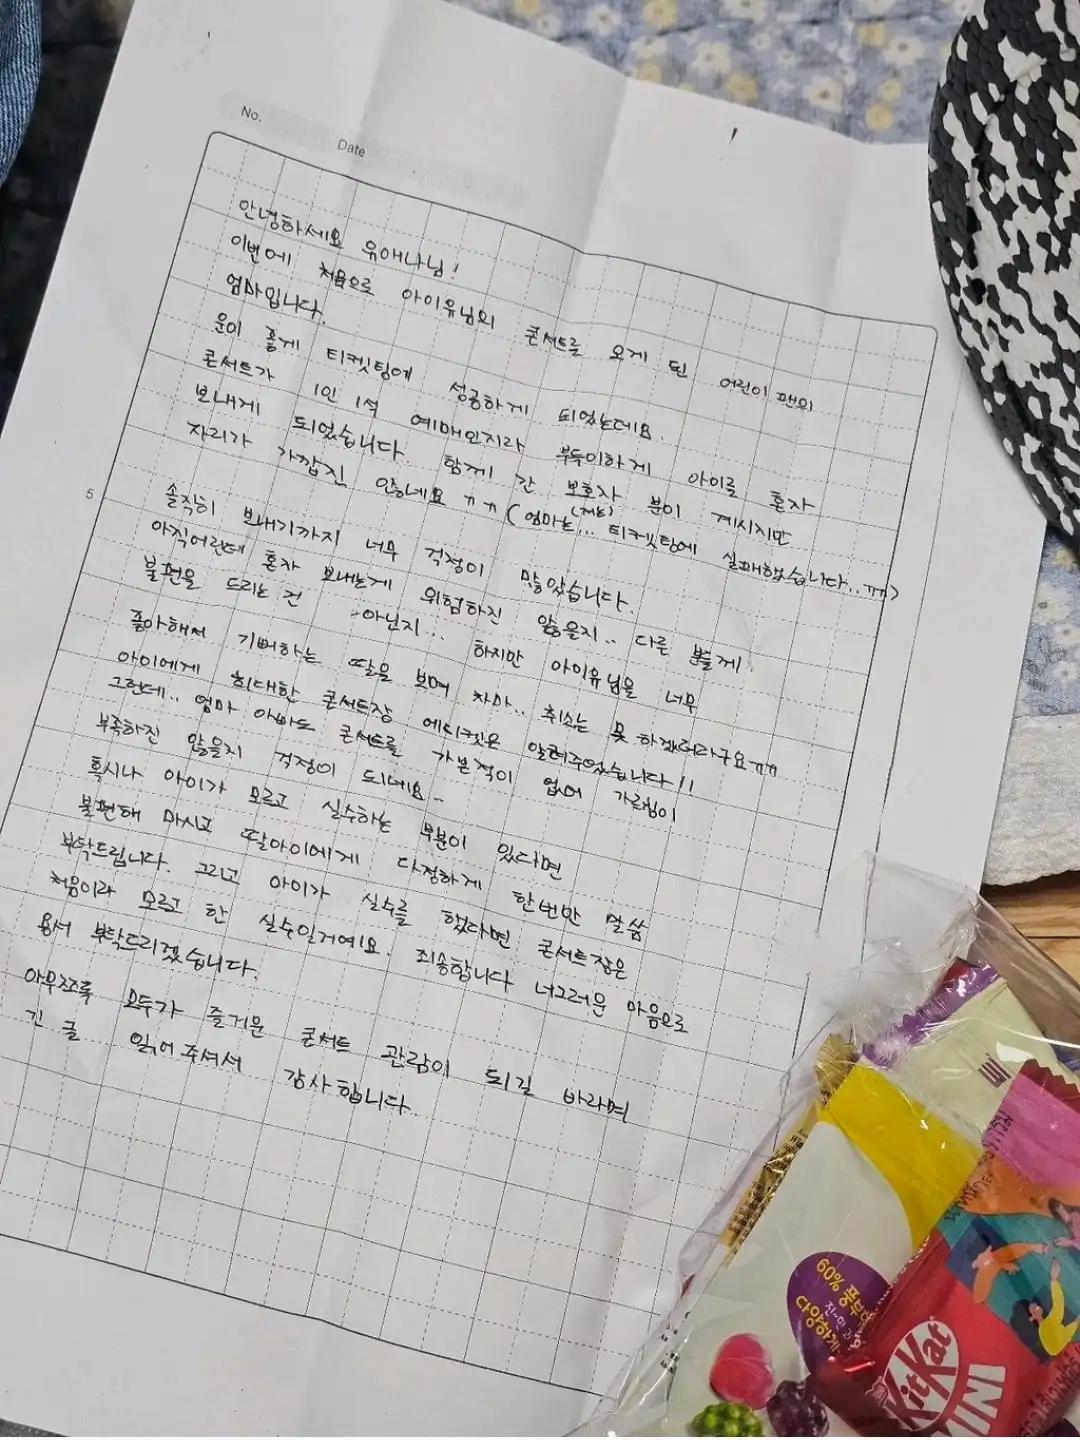 No.
Date
안녕하세요 유애나님!
이번에 처음으로 아이유님의 콘서트를 오게 된 어린이 팬의
엄마입니다.
운이 좋게 티켓팅에 성공하게 되었는데요.
콘서트가 1인 1석 예매인지라 부득이하게 아이를 혼자
보내게 되었습니다. 함께 간 보호자 분이 계시지만
자리가 가깝진 않네요 ㅠㅠ (엄마는(저는)... 티켓팅에 실패했습니다..ㅠㅠ)
5
솔직히 보내기까지 너무 걱정이 많았습니다.
아직어린데 혼자 보내는게 위험하진 않을지.. 다른 분들께
불편을 드리는건 아닌지.. 하지만 아이유님을 너무
좋아해서 기뻐하는 딸을 보며 차마.. 취소는 못 하겠더라구요ㅠㅠ
아이에게 최대한 콘서트장 에티켓은 알려주었습니다!!
그런데.. 엄마 아빠도 콘서트를 가본적이 없어 가르침이
부족하진 않을지 걱정이 되네요..
혹시나 아이가 모르고 실수하는 부분이 있다면
불편해 마시고 딸아이에게 다정하게 한번만 말씀
부탁드립니다. 그리고 아이가 실수를 했다면 콘서트장은
처음이라 모르고 한 실수일거예요. 죄송합니다 너그러운 마음으로
용서 부탁드리겠습니다.
아무쪼록 모두가 즐거운 콘서트 관람이 되길 바라며
긴 글 읽어주셔서 감사합니다.
60% 풍부
다양하게
KitKat
MINI